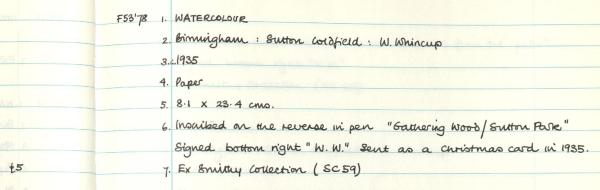 F53'78 1. WATERCOLOUR
2. Birmingham : Sutton Coldfield : W. Whincup
3. 1935
4. Paper
5. 8.1 x 23.4 cms.
6. Inscribed on the reverse in pen "Gathering Wood/Sutton Park"
Signed bottom right "W.W." Sent as a Christmas card in 1935.
£5 7. Ex Smithy Collection (SC59)